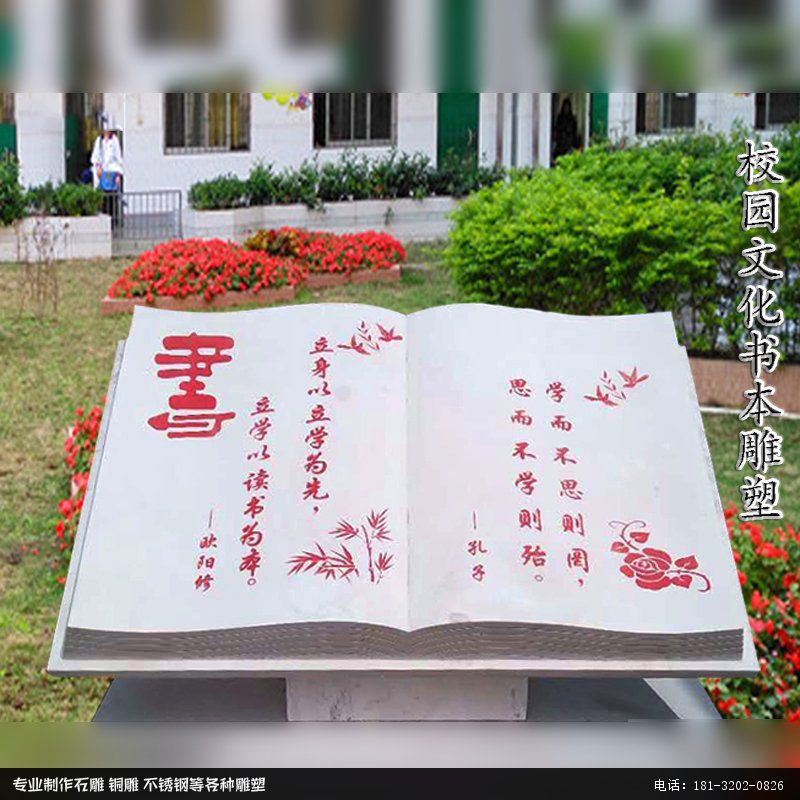 校园文化书本雕塑
書
立身以立学为先，
立学以读书为本。
—欧阳修
学而不思则罔，
思而不学则殆。
—孔子
专业制作石雕 铜雕 不锈钢等各种雕塑
电话：181-3202-0826